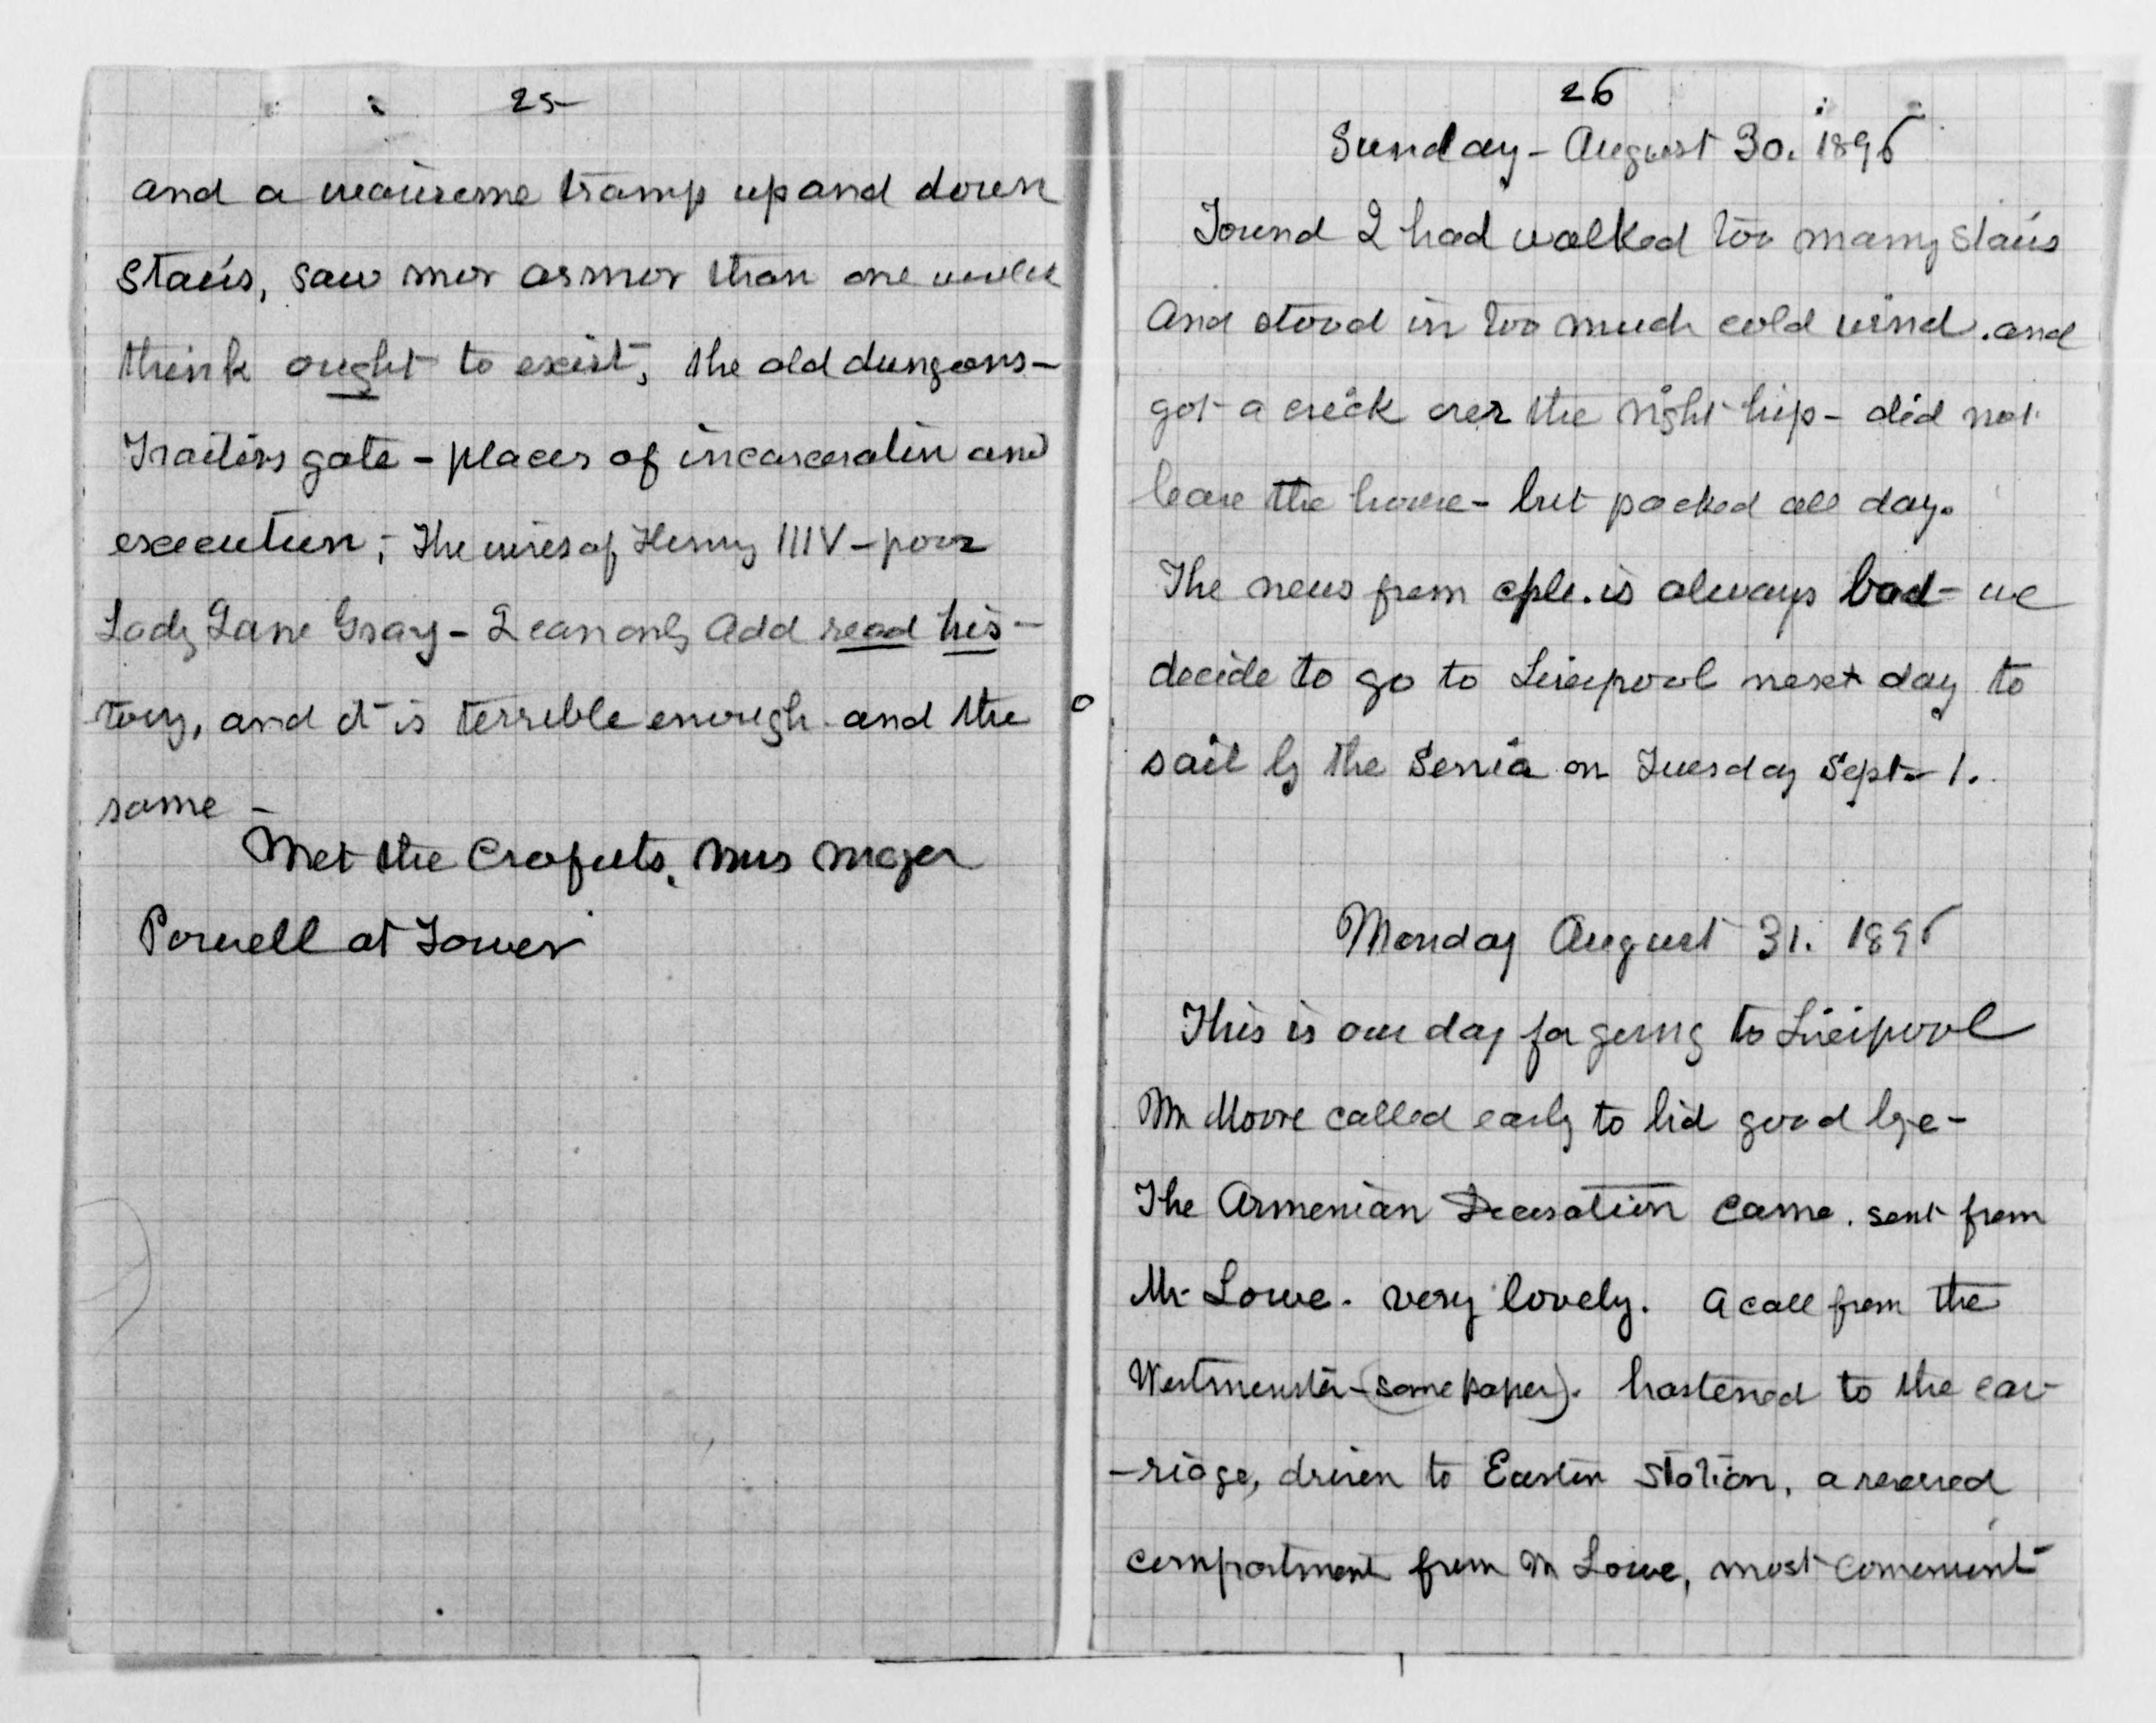 25
and a wearisome tramp up and down
stairs, saw mor armor than one would
think ought to exist, the old dungeons -
Traitors gate - places of incarceration and
execution, - The wives of Henry IIIV - poor
Lady Jane Gray - I can only add read his -
tory, and it is terrible enough - and the
same -
Met the Crofuts, Mrs Major
Powell at Tower
26
Sunday - August 30. 1896
Found I had walked too many stairs
and stood in too much cold wind. and
got a crick over the right hip - did not
leave the house - but packed all day.
The news from cple. is always bad - we
decide to go to Liverpool next day to
sail by the Servia on Tuesday Sept - 1.
Monday August 31. 1896
This is our day for going to Liverpool
Mr Moore called early to bid good bye -
The Armenian Decoration came. sent from
Mr Lowe. very lovely. A call from the
Westminster - (some paper). hastened to the car-
-riage, driven to Euston Station, a reserved
compartment from Mr Lowe, most convenient